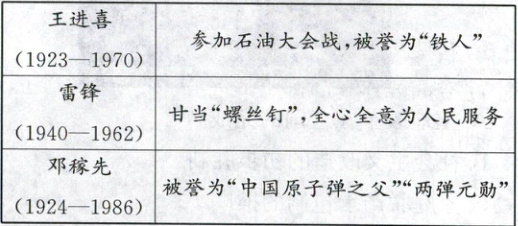 王进喜
（1923—1970）
参加石油大会战,被誉为“铁人”
雷锋
（1940—1962）
甘当“螺丝钉”,全心全意为人民服务
邓稼先
（1924—1986）
被誉为“中国原子弹之父”“两弹元勋”